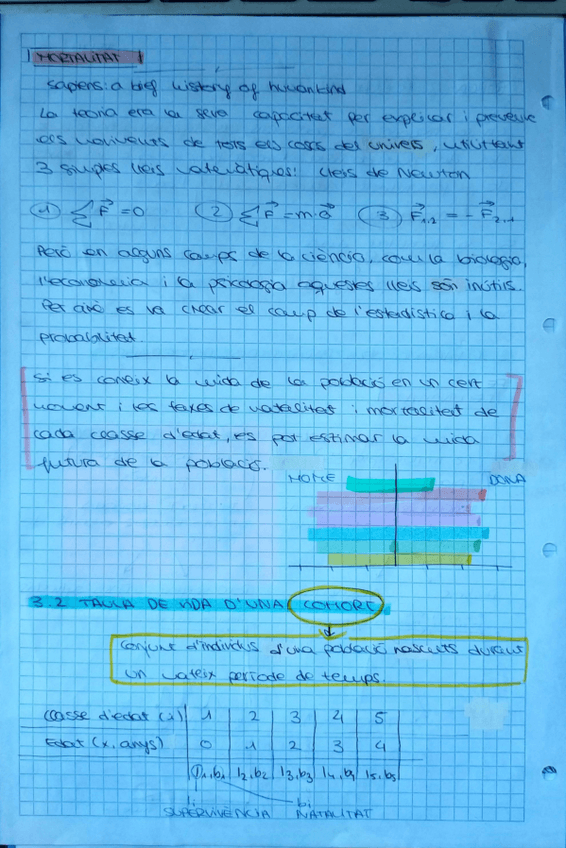 MORTALITAT
sapens: a brief history of humankind
La teoria era la seva capacitat per explicar i preveure
els moviments de tots els cossos del univers, utilitzant
3 simples lleis matemàtiques: lleis de Newton
① ∑F⃗ = 0 ② ∑F⃗ = m·a⃗ ③ F⃗1,2 = - F⃗2,1
Però en alguns camps de la ciència, com la biologia,
l'economia i la psicologia aquestes lleis són inútils.
Per això es va crear el camp de l'estadística i la
probabilitat.
Si es coneix la mida de la població en un cert
moment i les taxes de natalitat i mortalitat de
cada classe d'edat, es pot estimar la mida
futura de la població.
HOME DONA
3.2 TAULA DE VIDA D'UNA COHORT
conjunt d'individus d'una població nascuts durant
un mateix període de temps.
Classe d'edat (i) 1 2 3 4 5
Edat (x, anys) 0 1 2 3 4
l1,b1 l2,b2 l3,b3 l4,b4 l5,b5
li bi
SUPERVIVÈNCIA NATALITAT